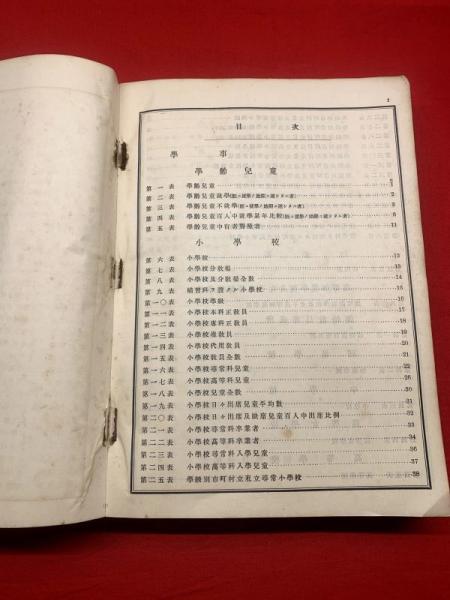 1
目次
學事
學齡兒童
第一表 學齡兒童 1
第二表 學齡兒童就學 2
第三表 學齡兒童不就學 5
第四表 學齡兒童百人中就學累年比較 8
第五表 學齡兒童中盲者聾啞者 11
小學校
第六表 小學校 13
第七表 小學校分敎場 13
第八表 小學校及分敎場全數 14
第九表 補習科ヲ置クル小學校 15
第一〇表 小學校學級 16
第一一表 小學校本科正敎員 17
第一二表 小學校專科正敎員 18
第一三表 小學校准敎員 19
第一四表 小學校代用敎員 20
第一五表 小學校敎員全數 21
第一六表 小學校尋常科兒童 22
第一七表 小學校高等科兒童 26
第一八表 小學校兒童全數 30
第一九表 小學校日々出席兒童平均數 31
第二〇表 小學校日々出席及缺席兒童百人中出席比例 32
第二一表 小學校尋常科卒業者 33
第二二表 小學校高等科卒業者 34
第二三表 小學校尋常科入學兒童 36
第二四表 小學校高等科入學兒童 37
第二五表 學級別市町村立私立尋常小學校 38